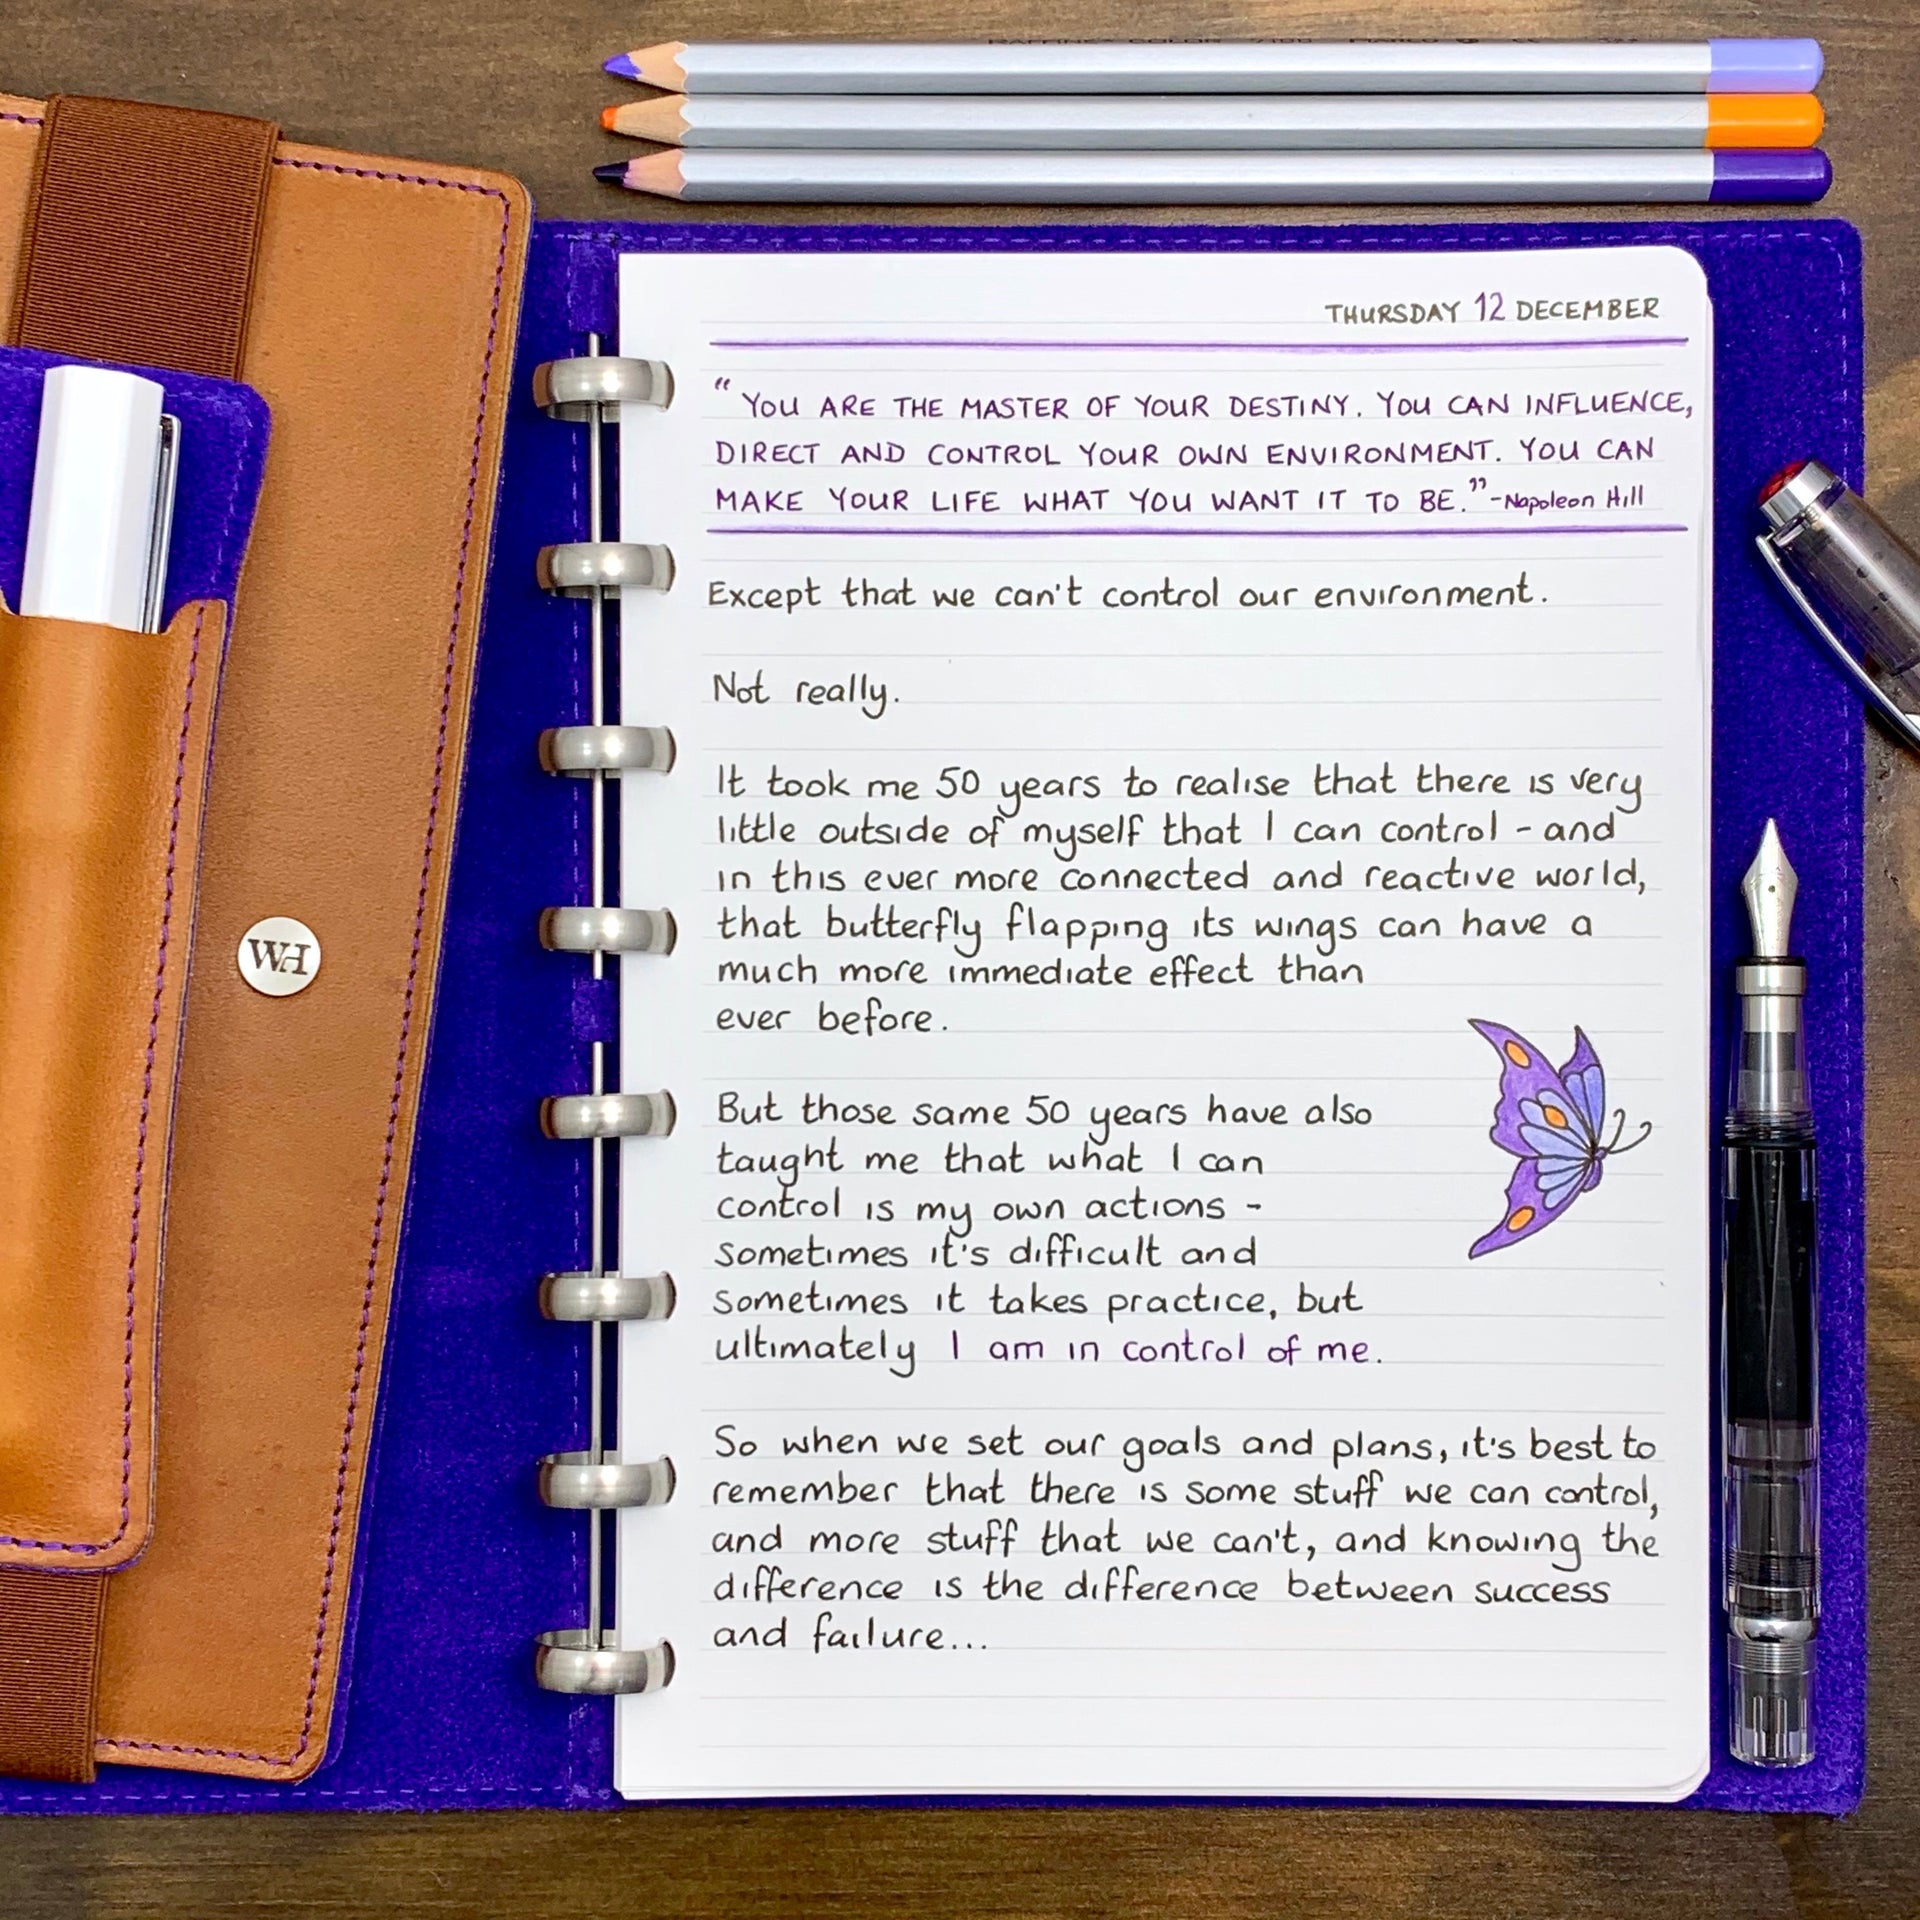 THURSDAY 12 DECEMBER
"YOU ARE THE MASTER OF YOUR DESTINY. YOU CAN INFLUENCE,
DIRECT AND CONTROL YOUR OWN ENVIRONMENT. YOU CAN
MAKE YOUR LIFE WHAT YOU WANT IT TO BE." - Napoleon Hill
Except that we can't control our environment.
Not really.
It took me 50 years to realise that there is very
little outside of myself that I can control - and
in this ever more connected and reactive world,
that butterfly flapping its wings can have a
much more immediate effect than
ever before.
But those same 50 years have also
taught me that what I can
control is my own actions -
sometimes it's difficult and
sometimes it takes practice, but
ultimately I am in control of me.
So when we set our goals and plans, it's best to
remember that there is some stuff we can control,
and more stuff that we can't, and knowing the
difference is the difference between success
and failure...
WH